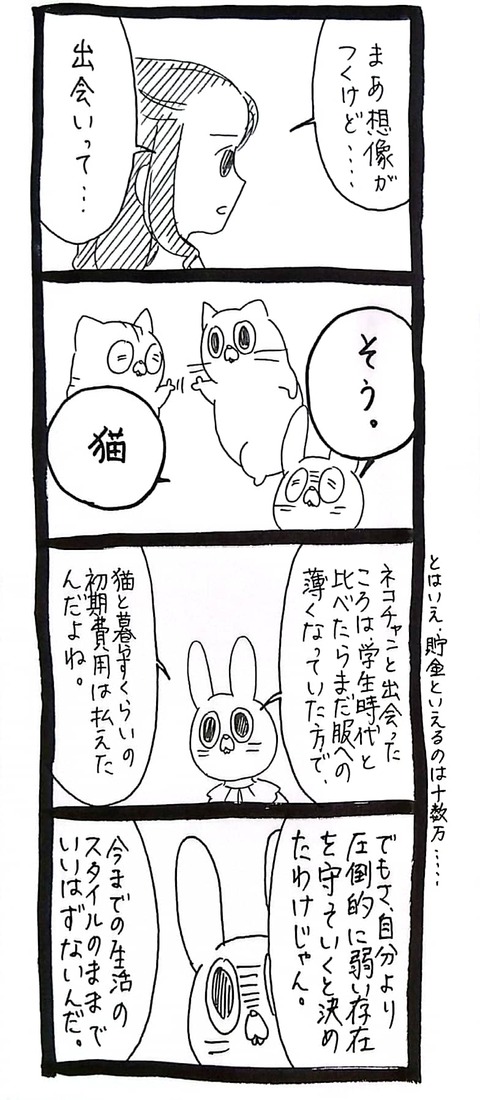 まあ想像が
つくけど‥‥
出会いって…
そう。
猫
ネコチャンと出会った
ころは、学生時代と
比べたらまだ服への
薄くなっていた方で、
猫と暮らすくらいの
初期費用は払えた
んだよね。
とはいえ、貯金といえるのは十数万‥‥
でもさ、自分より
圧倒的に弱い存在
を守っていくと決め
たわけじゃん。
今までの生活の
スタイルのままで
いいはずないんだ。